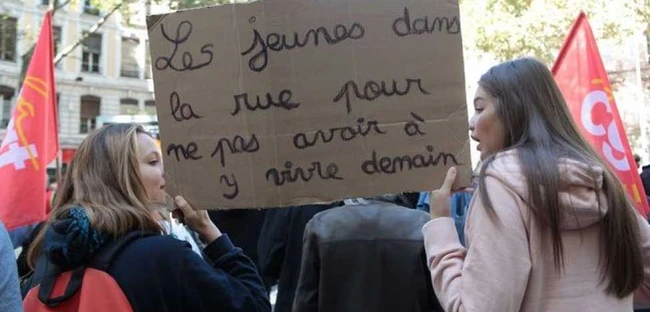 Les jeunes dans
la rue pour
ne pas avoir à
y vivre demain